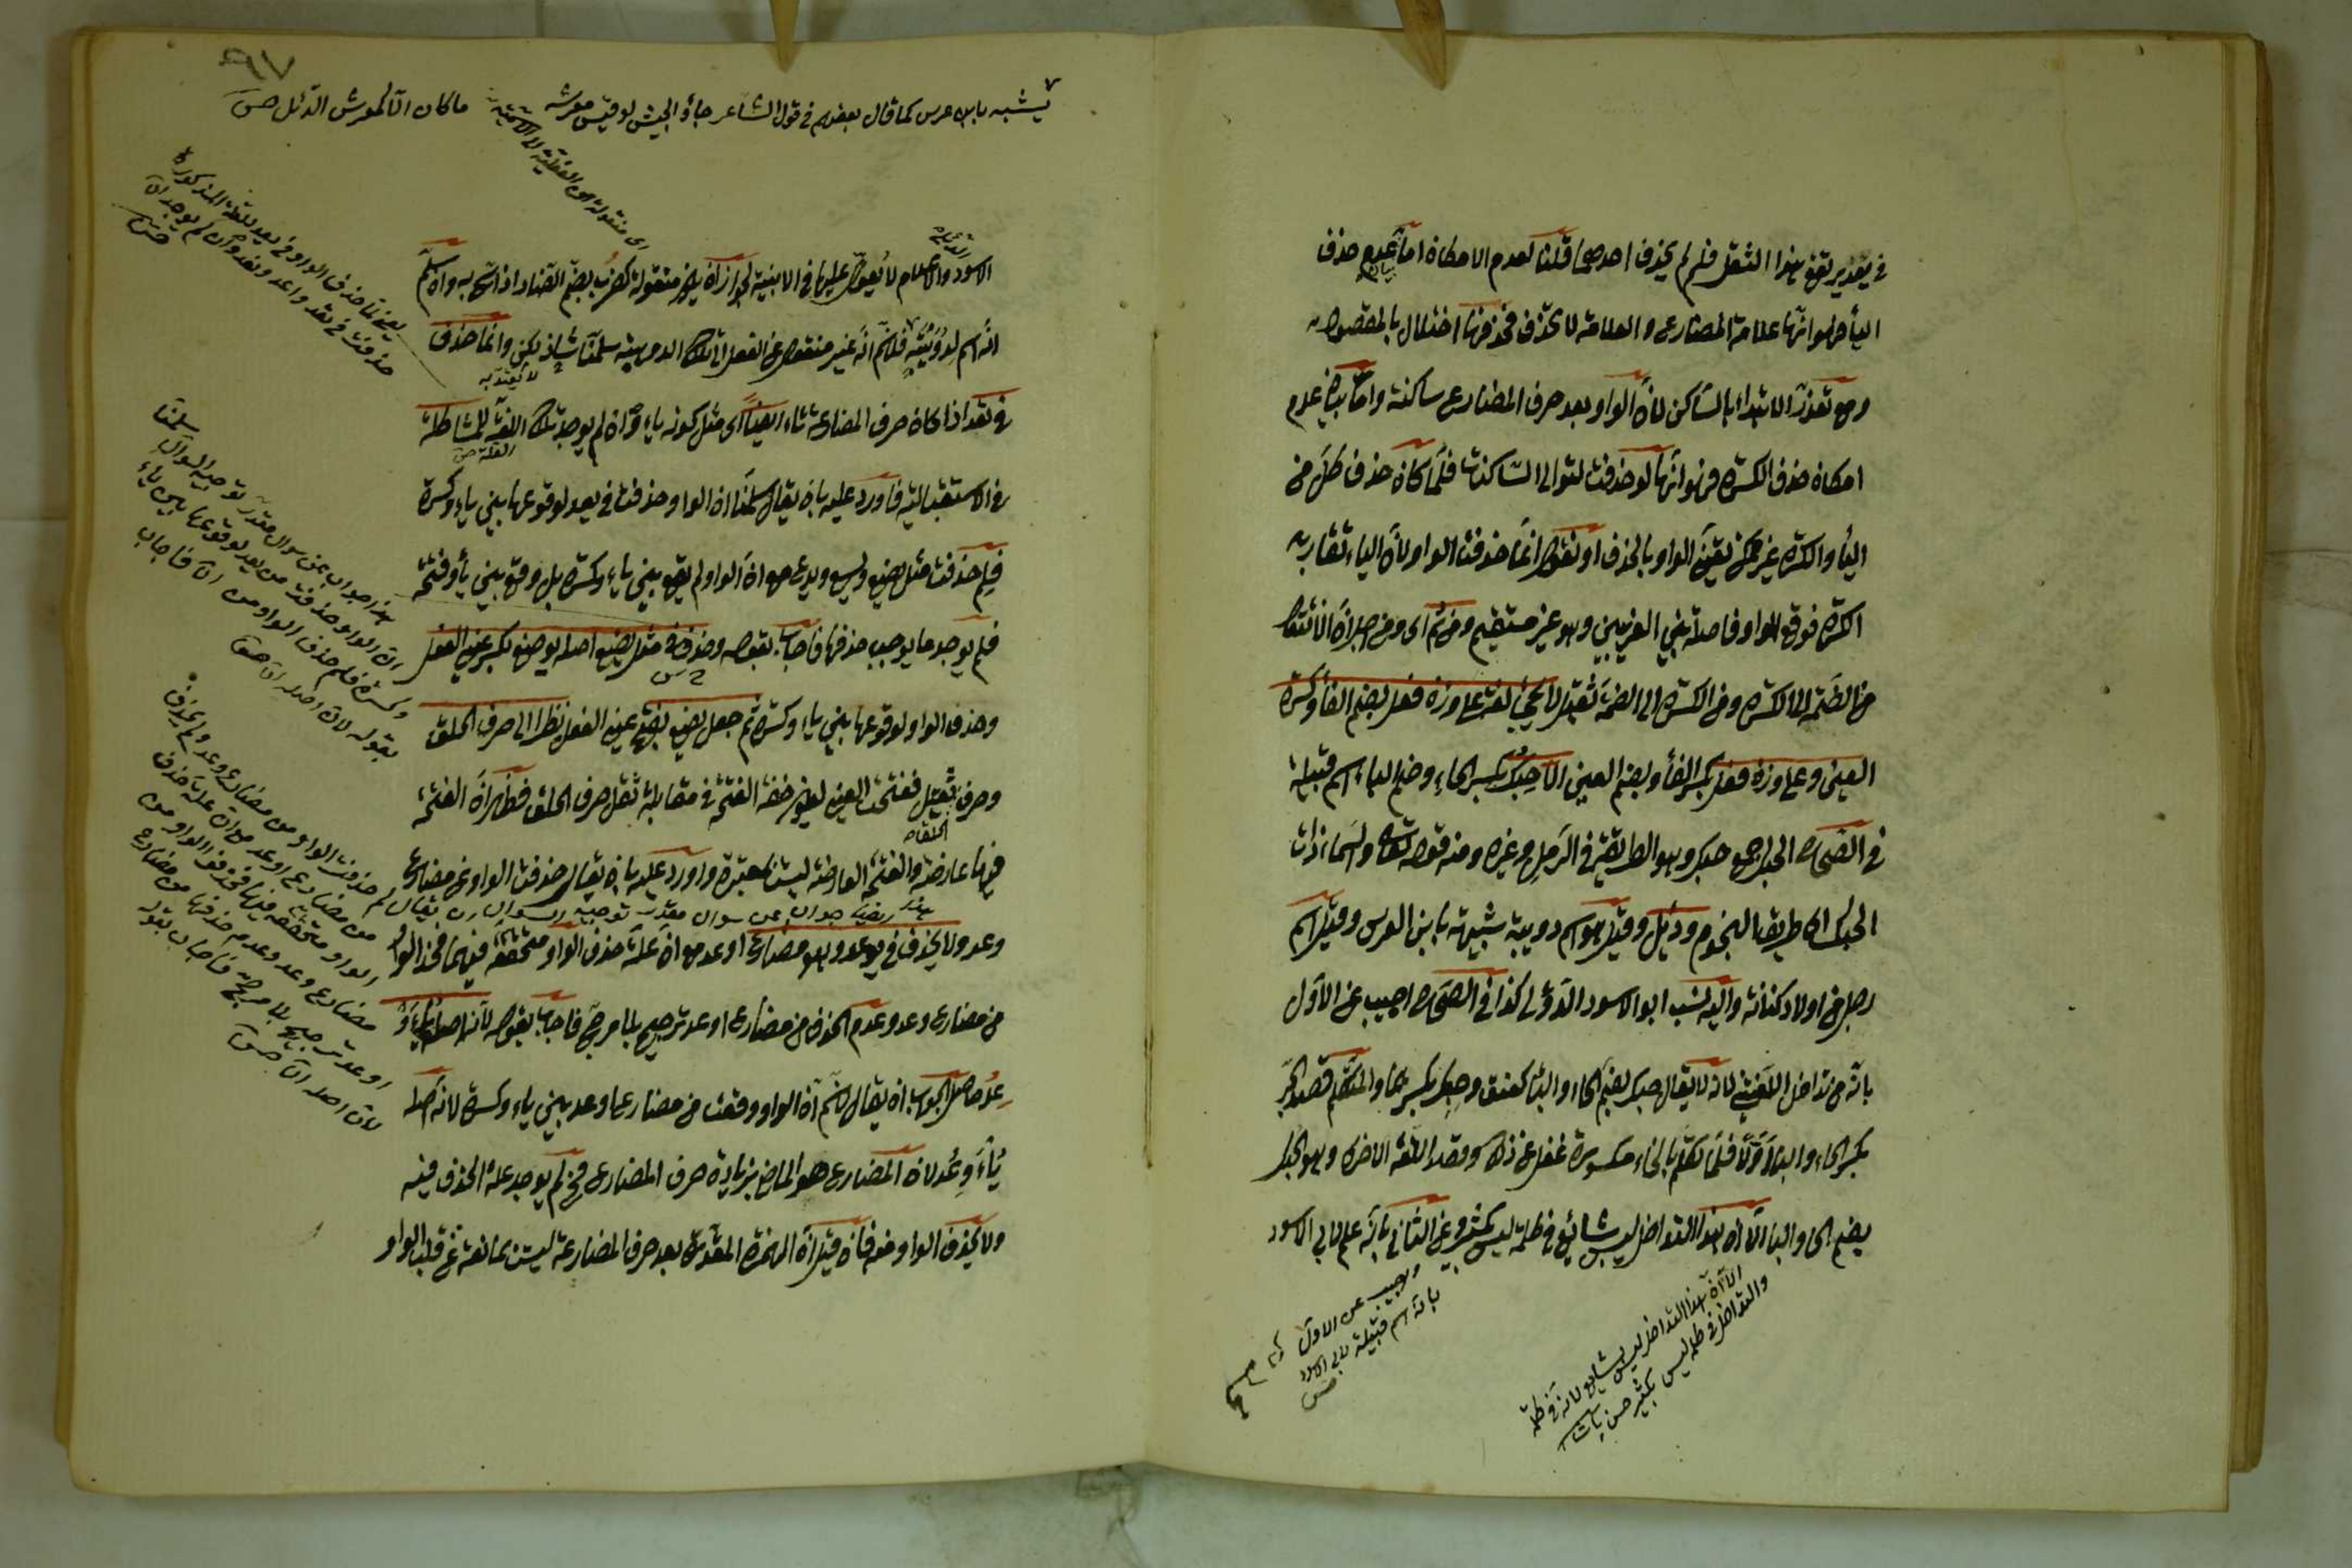 في تقدير تقف هذا الثقل فلم لم يحذف احديها قلنا لعدم الامكان اما عدم حذف
اليأ فهو انها علامة المضارع والعلامة لا تحذف فحذفها اختلال بالمقصود
وهو تعذر الابتداء بالساكن لان الواو بعد حرف المضارع ساكنة واما عدم
امكان حذف الكسرة فهو انها لو حذفت لتوالى الساكنان فلما كان حذف كل من
اليأ والكسرة غير ممكن تعين الواو بالحذف او نقول انما حذفت الواو لان الياء تقاربه
الكسرة فوقع الواو فاصلة بين القريبين وهو غير مستقيم ومن ثم اى ومن اجل ان الانتقال
من الضمة الى الكسرة ومن الكسرة الى الضمة ثقيل لا يجئ لغة على وزن فعل بضم الفأ وكسرة
العين وعلى وزن فعل بكسر الفأ وبضم العين الا الحبك بكسر الحاء وضم الباء اسم قبيلة
في الصحاح الحبك جمع حبيك وهو الطريقة في الرمل وغيره ومنه قوله تعالى والسماء ذات
الحبك اى طريق النجوم ودئل وقيل هو اسم دويبة شبيهة بابن العرس وقيل اسم
رجل من اولاد كنانة واليه نسب ابو الاسود الدؤلى كذا في الصحاح اجيب عن الاول
بانه من تداخل اللغتين لانه يقال حبك بضم الحاء والباء كعنق وحبك بكسرهما والمتكلم قصد الحبك
بكسر الحاء والباء اولا فلما تكلم بالحاء مكسورة غفل عن ذلك وقصد اللغة الاخرى وهو الحبك
بضم الحا والبا الا ان هذا التداخل ليس شائع في كلمة ليس بكثير وعن الثانى بانه علم لابى الاسود
الا ان هذا التداخل ليس بشايع لانه في كلمة
والتداخل في كلمة ليس بكثير حسن پاشا
وجيب عن الاول
بانه اسم قبيلة لابى الاسود
يشبه بابن عرس كما قال بعضهم في قول الشاعر جاؤا الجيش لو قيس معرسه ما كان الا كمعرس الدئل
اى منقولة من الفعلية الى الاسمية
الاسود والاعلام لا يعول عليها في الابنية لجواز ان يكون منقولة كضرب بضم الضاد اذا سمى به وان سلم
انه اسم لدويبة فلا نسلم انه غير منقول عن الفعل الى تلك الدويبة سلمنا شاذ لكن وانما حذف
لا يعتد به
في تعد اذا كان حرف المضارعة تاء ايضا اى مثل كونه ياء وان لم يوجد تلك العلة للمشاكلة
في الاستقبالية فاورد عليه بان يقال سلمنا ان الواو حذفت في يعد لوقوعها بين ياء وكسرة
فلم حذفت مثل يضع ويسع ويدع مع ان الواو لم يقع بين ياء وكسرة بل وقع بين يأ وفتحة
فلم يوجد ما يوجب حذفها فاجاب بقوله وحذف في مثل يضع اصله يوضع بكسر عين الفعل
وحذف الواو لوقوعها بين ياء وكسرة ثم جعل يضع بفتح عين الفعل نظرا الى حرف الحلق
وحرف ثقيل ففتحت العين ليقوم خفة الفتحة في مقابلة ثقل حرف الحلق فظهر ان الفتحة
فيها عارضة والفتحة العارضة ليست بمعتبرة واورد عليه بان يقال حذفت الواو عن مضارع
وعد ولا يحذف في يوعد وهو مضارع اوعد مع ان علة حذف الواو متحققة فيهما فحذف الواو
من مضارع وعد وعدم الحذف من مضارع اوعد ترجيح بلا مرجح فاجاب بقوله لان اصله يأو
عد حاصل الجواب ان يقال لا نسلم ان الواو وقعت من مضارع اوعد بين ياء وكسرة لان اصله
يأوعد لان المضارع هو الماضى بزيادة حرف المضارع فح لم يوجد علة الحذف فيه
ولا يحذف الواو منه فان قيل ان الهمزة المقدرة بعد حرف المضارعة ليست بمانعة عن قلب الواو
يعنى لما حذف الواو في يعد للعلة المذكورة
حذفت في تعد واعد ونعد وان لم يوجد
هذا جواب عن سوال مقدر توجيه السوال سلمنا
ان الواو حذفت من يعد لوقوعها بين ياء
وكسرة فلم حذف الواو من
بقوله لان اصله
هذا ايضا جواب عن سوال مقدر توجيه السوال ان يقال لم حذفت الواو من مضارع وعد ولم يحذف
من مضارع اوعد مع ان علة حذف
الواو متحققة فيهما فحذف الواو من
مضارع وعد وعدم حذفها من مضارع
اوعد ترجيح بلا مرجح فاجاب بقوله
لان اصله